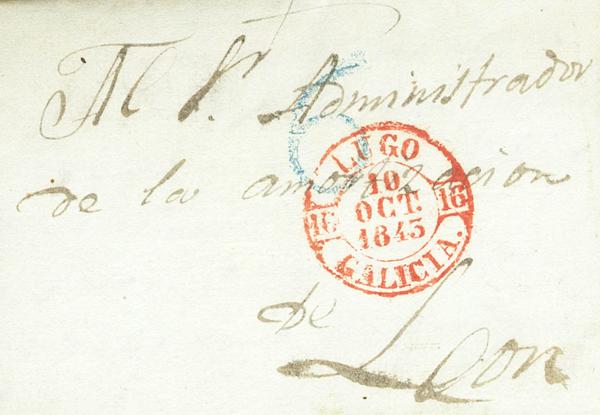 Al Sr. Administrador
de la amortizacion
de Leon
LUGO
10
OCT.
1843
16 16
GALICIA.